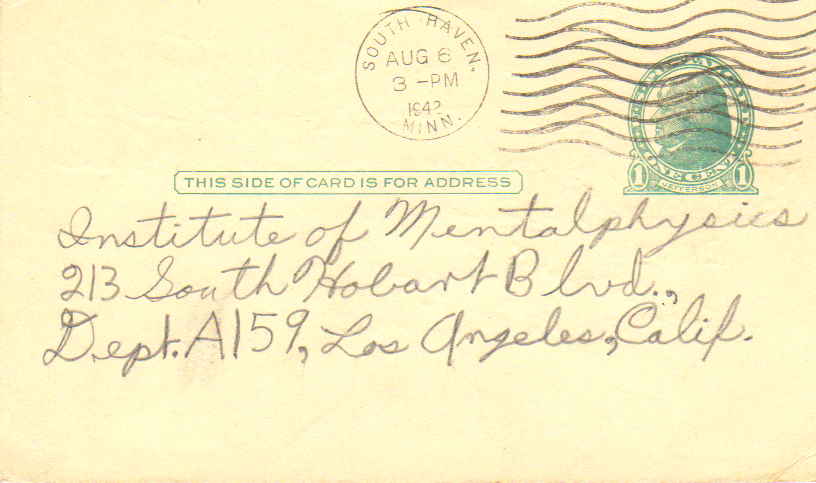 SOUTH HAVEN.
AUG 6
3 -PM
1942
MINN.
1 JEFFERSON 1
THIS SIDE OF CARD IS FOR ADDRESS
Institute of Mentalphysics
213 South Hobart Blvd.,
Dept. A159, Los Angeles, Calif.